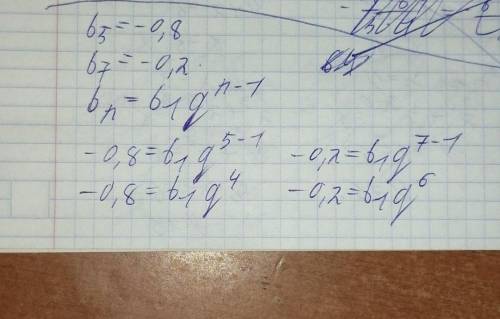 b₅=-0,8
b₇=-0,2.
bₙ=b₁qⁿ⁻¹
-0,8=b₁q⁵⁻¹ -0,2=b₁q⁷⁻¹
-0,8=b₁q⁴ -0,2=b₁q⁶